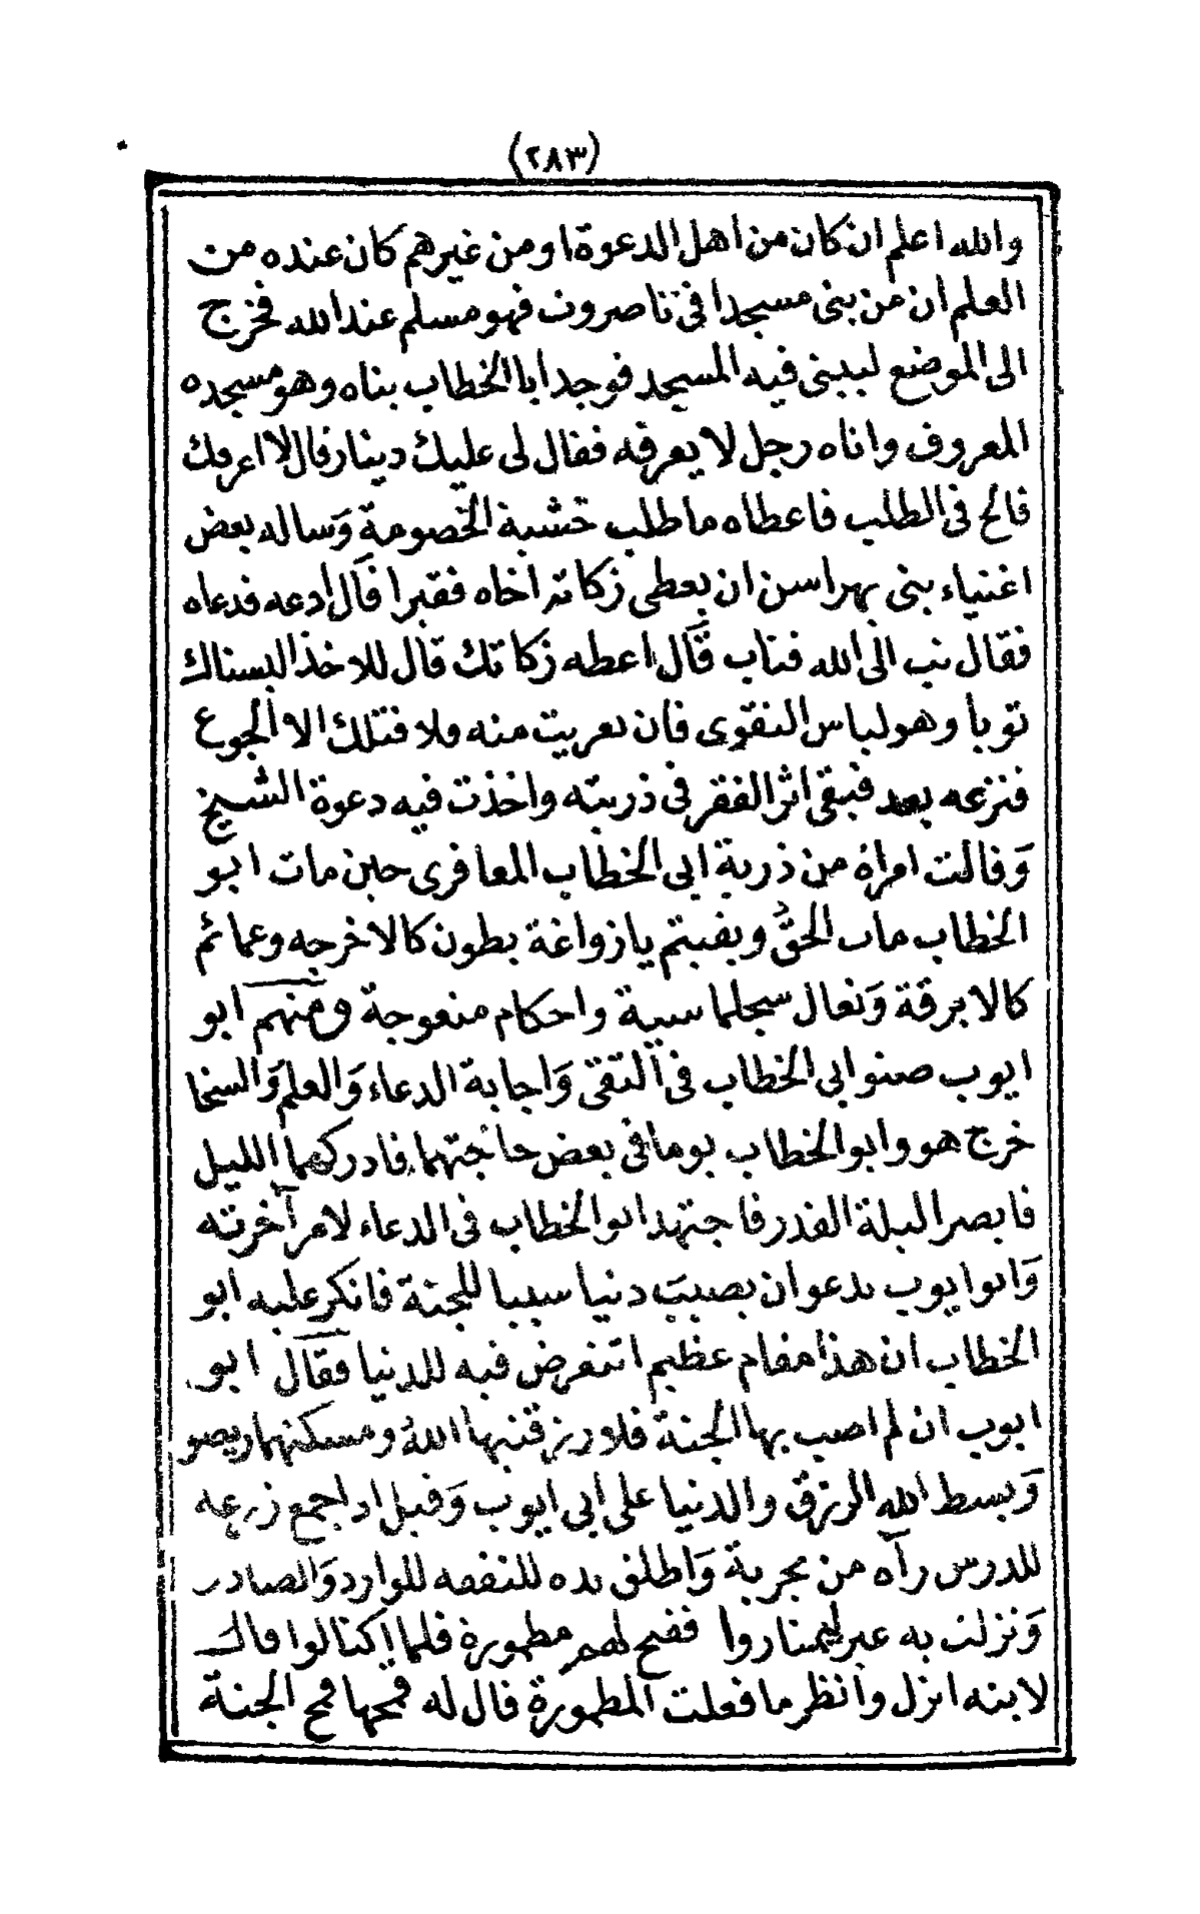 (٢٨٣)
والله اعلم ان كان من اهل الدعوة او من غيرهم كان عنده من
العلم ان من بنى مسجدا فى تاصروت فهو مسلم عند الله فخرج
الى الموضع ليبنى فيه المسجد فوجد ابا الخطاب بناه وهو مسجده
المعروف واتاه رجل لا يعرفه فقال لى عليك دينار قال لا اعرفك
فالح فى الطلب فاعطاه ما طلب خشية الخصومة وساله بعض
اغنياء بنى يهراسن ان يعطى زكاته اخاه فقيرا قال ادعه فدعاه
فقال تب الى الله فتاب قال اعطه زكاتك قال للاخذ البسناك
ثوبا وهو لباس التقوى فان تعريت منه ولا قتلك الا الجوع
فنزعه بعد فبقى اثر الفقر فى ذريته واخذت فيه دعوة الشيخ
وقالت امراة من ذرية ابى الخطاب المعافرى حين مات ابو
الخطاب مات الحق وبقيتم يا زواغة بطون كالاخرجه وعمائم
كالابرقة ونعال سجلماسية واحكام منعوجة ومنهم ابو
ايوب صنو ابى الخطاب فى التقى واجابة الدعاء والعلم والسخا
خرج هو وابو الخطاب يوما فى بعض حاجتهما فادركهما الليل
فابصرا ليلة القدر فاجتهد ابو الخطاب فى الدعاء لامر آخرته
وابو ايوب يدعو ان يصيب دنيا سببا للجنة فانكر عليه ابو
الخطاب ان هذا مقام عظيم اتتعرض فيه للدنيا فقال ابو
ايوب ان لم اصب بها الجنة فلا رزقنيها الله ومسكنهما ريصو
وبسط الله الرزق والدنيا على ابى ايوب وقيل اذا جمع زرعه
للدرس رآه من بجربة واطلق يده للنفقه للوارد والصادر
ونزلت به عير ليمتاروا ففتح لهم مطمورة فلما اكتالوا قال
لابنه انزل وانظر ما فعلت المطمورة قال له قمحها قمح الجنة